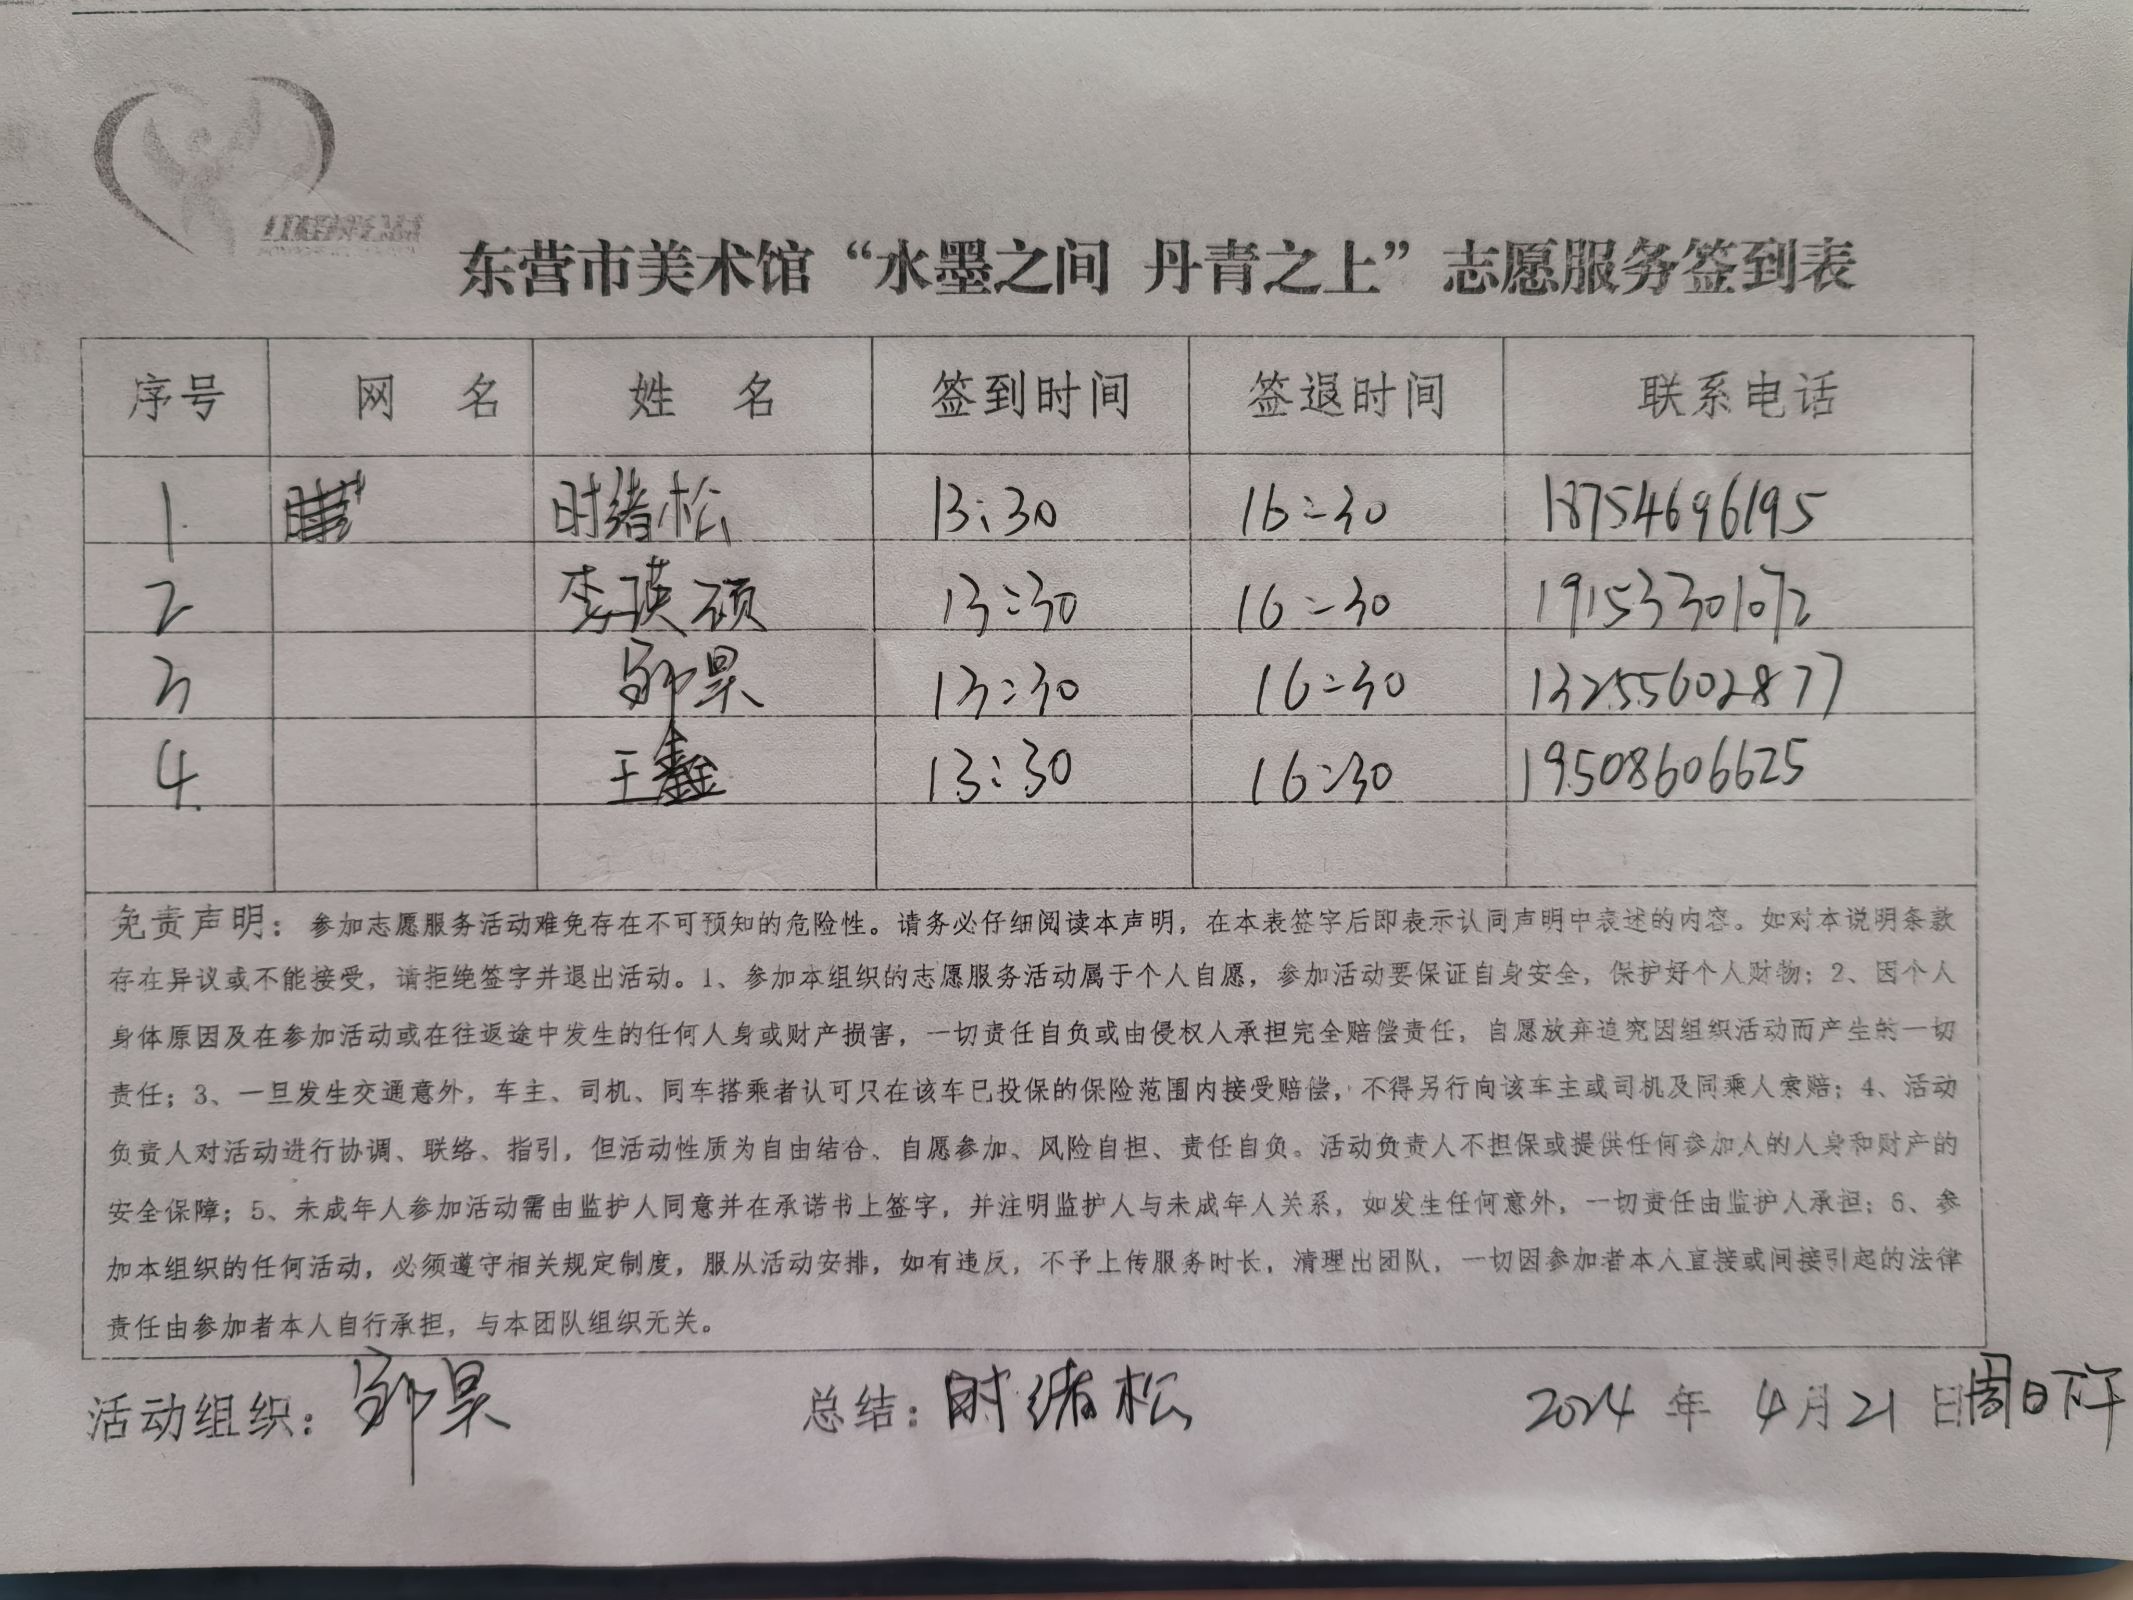 东营市美术馆“水墨之间 丹青之上”志愿服务签到表
序号 网 名 姓 名 签到时间 签退时间 联系电话
1 时绪松 13:30 16:30 18754696195
2 李瑛硕 13:30 16:30 19153301072
3 郭昊 13:30 16:30 13255602877
4 王鑫 13:30 16:30 19508606625
免责声明：参加志愿服务活动难免存在不可预知的危险性。请务必仔细阅读本声明，在本表签字后即表示认同声明中表述的内容。如对本说明条款
存在异议或不能接受，请拒绝签字并退出活动。1、参加本组织的志愿服务活动属于个人自愿，参加活动要保证自身安全，保护好个人财物；2、因个人
身体原因及在参加活动或在往返途中发生的任何人身或财产损害，一切责任自负或由侵权人承担完全赔偿责任，自愿放弃追究因组织活动而产生的一切
责任；3、一旦发生交通意外，车主、司机、同车搭乘者认可只在该车已投保的保险范围内接受赔偿，不得另行向该车主或司机及同乘人索赔；4、活动
负责人对活动进行协调、联络、指引，但活动性质为自由结合、自愿参加、风险自担、责任自负。活动负责人不担保或提供任何参加人的人身和财产的
安全保障；5、未成年人参加活动需由监护人同意并在承诺书上签字，并注明监护人与未成年人关系，如发生任何意外，一切责任由监护人承担；6、参
加本组织的任何活动，必须遵守相关规定制度，服从活动安排，如有违反，不予上传服务时长，清理出团队，一切因参加者本人直接或间接引起的法律
责任由参加者本人自行承担，与本团队组织无关。
活动组织：郭昊 总结：时绪松 2024 年 4月21日周日下午